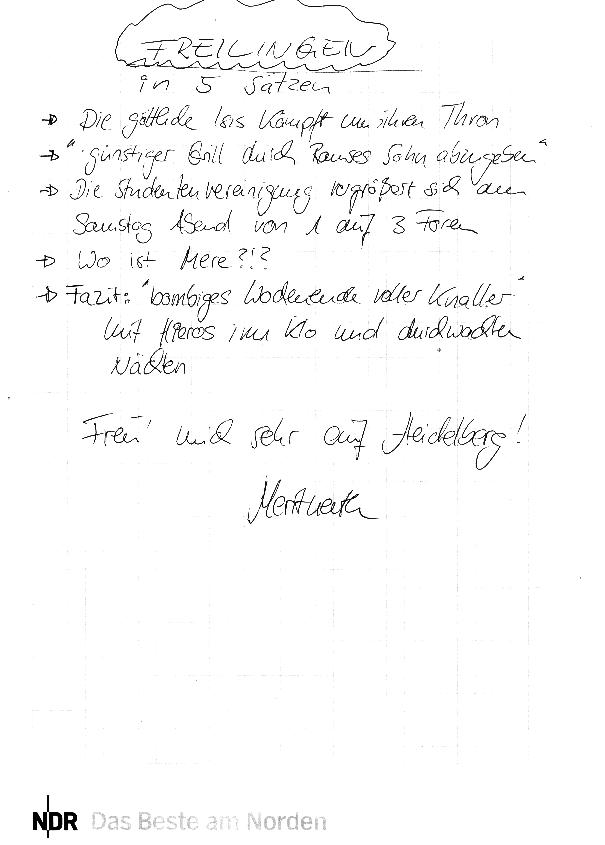 FREILINGEN
in 5 Sätzen
→ Die göttliche Isis kämpft um ihren Thron
→ "günstiger Grill durch Ramses Sohn abzugeben"
→ Die Studentenvereinigung vergrößert sich am
Samstag Abend von 1 auf 3 Foren
→ Wo ist Mere?!?
→ Fazit: "bombiges Wochenende voller Knaller"
mit im Klo und durchwachten
Nächten
Freu' mich sehr auf Heidelberg!
NDR Das Beste am Norden